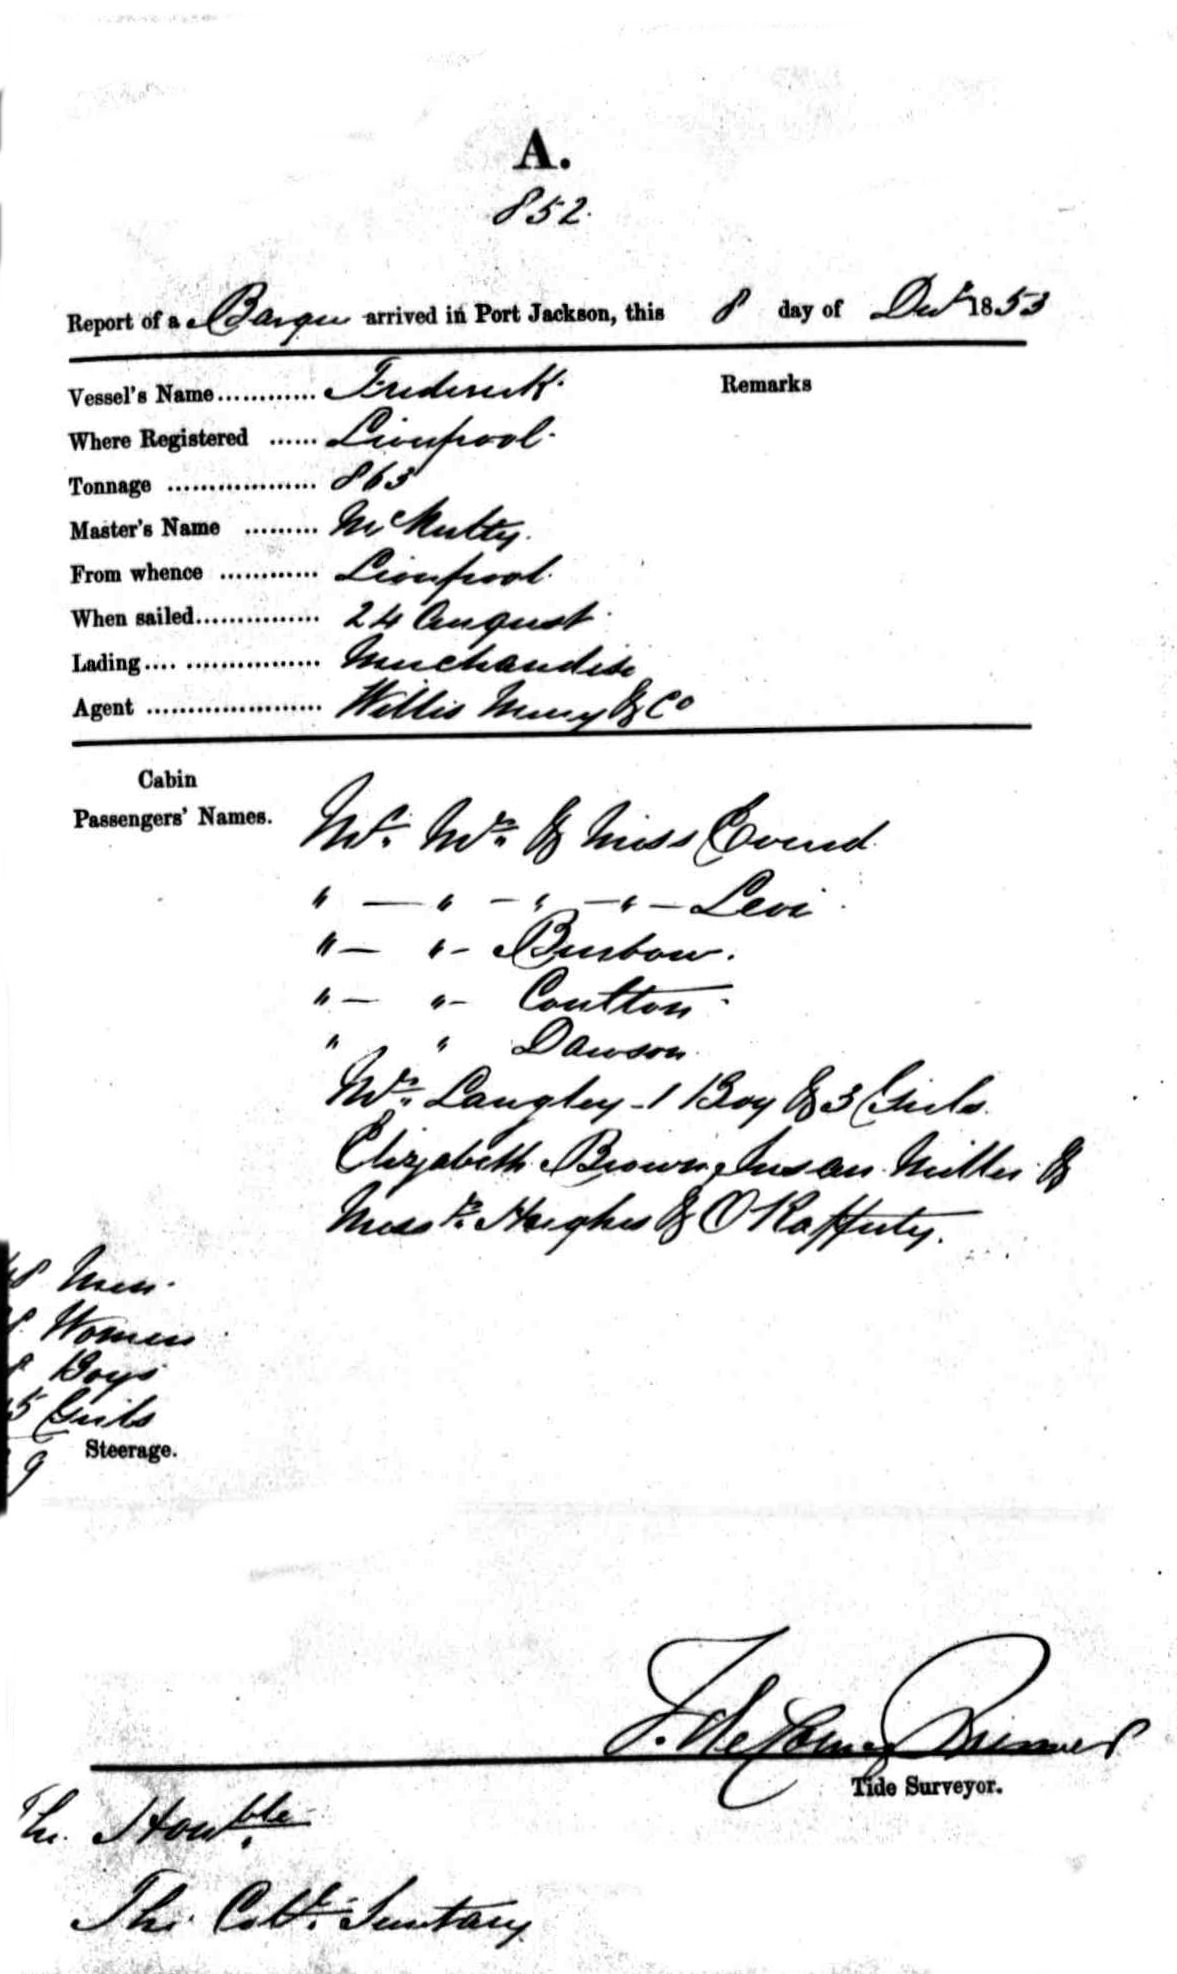 A.
852.
Report of a Barque arrived in Port Jackson, this 8 day of Decr 1853
Vessel's Name............ Frederick.
Remarks
Where Registered ...... Liverpool.
Tonnage .................. 863
Master's Name ......... McNutty.
From whence ............ Liverpool.
When sailed............... 24 August.
Lading.... ................ Merchandise
Agent ..................... Willis Merry & Co
Cabin
Passengers' Names.
Mr. Mrs. & Miss Everid.
" — " — " — " — Levi.
" — " -
" — " - Coulton.
" " Dawson.
Mrs. Langley - 1 Boy & 3 Girls.
Elizabeth Brown, Susan Miller &
Messrs. Hughes & O'Rafferty.
8 Men.
8 Women
8 Boys
5 Girls
9 Steerage.
Tide Surveyor.
The Honble.
The Coll. Secretary